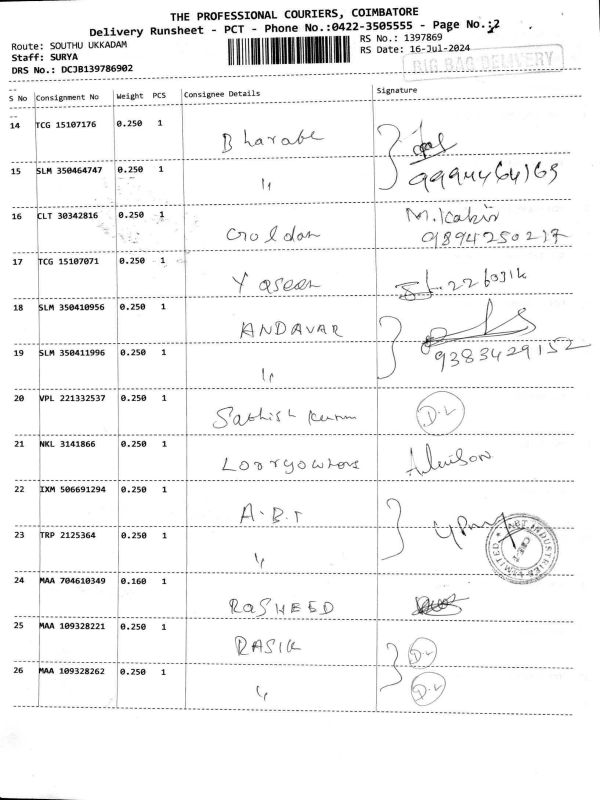 THE PROFESSIONAL COURIERS, COIMBATORE
Delivery Runsheet - PCT - Phone No.:0422-3505555 - Page No.:2
Route: SOUTHU UKKADAM
RS No.: 1397869
Staff: SURYA
RS Date: 16-Jul-2024
DRS No.: DCJB139786902
BIG BAG DELIVERY
S No Consignment No Weight PCS Consignee Details Signature
14 TCG 15107176 0.250 1
15 SLM 350464747 0.250 1 "
16 CLT 30342816 0.250 1 M. Kabir
9894250217
17 TCG 15107071 0.250 1 Yaseen
18 SLM 350410956 0.250 1 ANDAVAR
19 SLM 350411996 0.250 1 " 9383429152
20 VPL 221332537 0.250 1 Sathish kumar D.L
21 NKL 3141866 0.250 1 Lorryowners
22 IXM 506691294 0.250 1 A.B.T
ABT INDUSTRIES LIMITED
23 TRP 2125364 0.250 1 "
24 MAA 704610349 0.160 1 RASHEED
25 MAA 109328221 0.250 1 RASIK D.L
26 MAA 109328262 0.250 1 " D.L